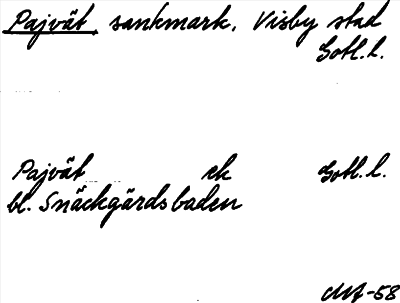 Pajvät, sankmark, Visby stad
Gotl. l.
Pajvät ek Gotl. l.
bl. Snäckgärdsbaden
MA-58